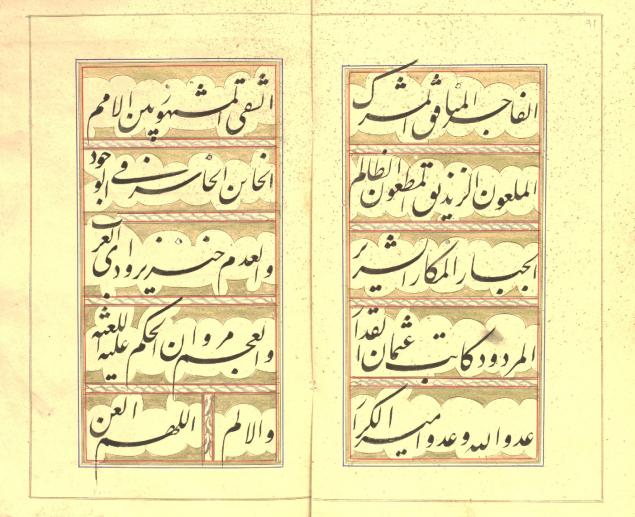 ٩١
الفاجر المنافق المشرك
الملعون الزنديق المطعون الظالم
الجبار المكار الشرير
المردود كاتب عثمان الغدار
عدو الله وعدو امير الكرار
الشقى المشهور بين الامم
الخاين الخاسر فى الوجود
والعدم خنزير وادى العرب
والعجم مروان الحكم عليه اللعنة
والالم اللهم العن